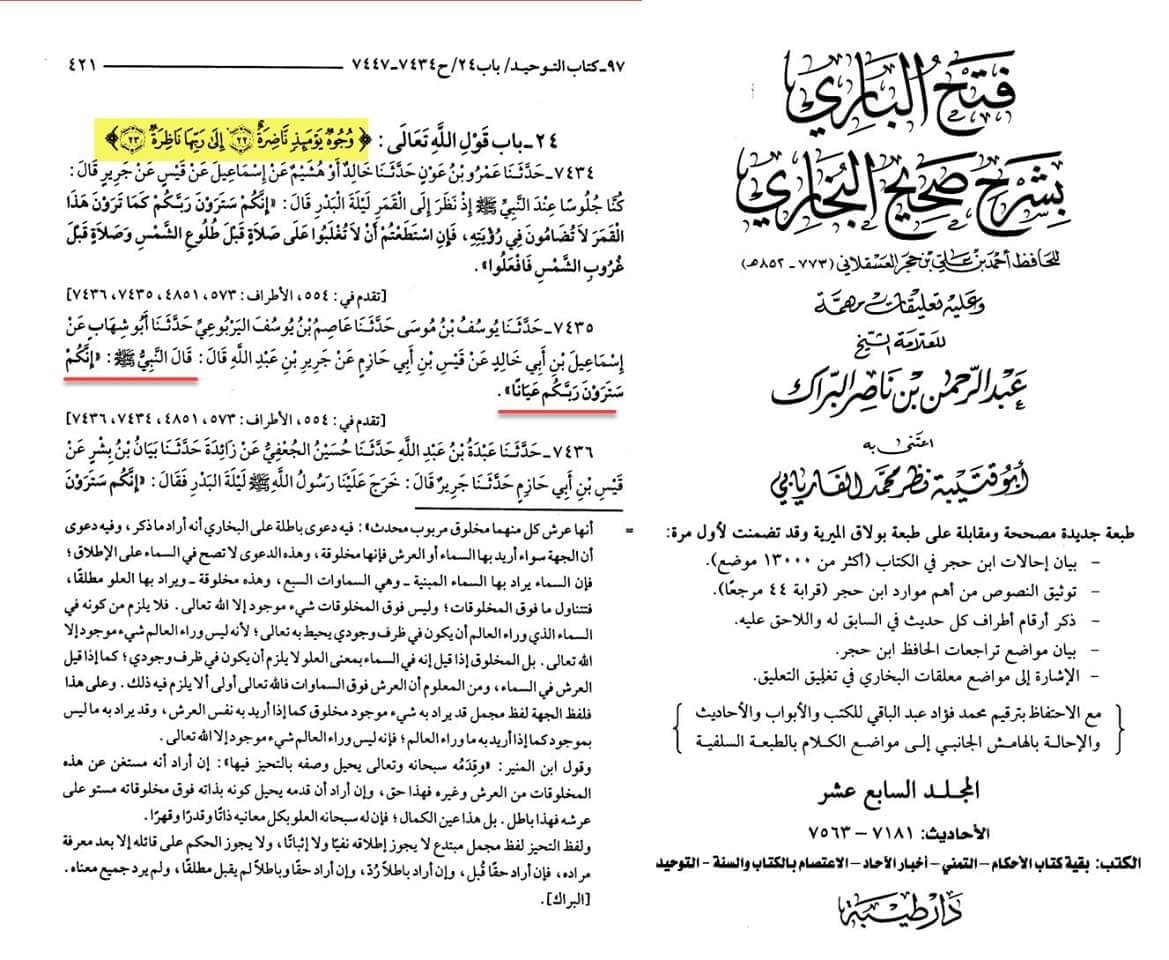 فتح الباري
بشرح صحيح البخاري
للحافظ أحمد بن علي بن حجر العسقلاني (٧٧٣ - ٨٥٢هـ)
وعليه تعليقات مهمة
للعلامة الشيخ
عبد الرحمن بن ناصر البراك
اعتنى به
أبو قتيبة نظر محمد الفاريابي
طبعة جديدة مصححة ومقابلة على طبعة بولاق الميرية وقد تضمنت لأول مرة:
- بيان إحالات ابن حجر في الكتاب (أكثر من ١٣٠٠٠ موضع).
- توثيق النصوص من أهم موارد ابن حجر (قرابة ٤٤ مرجعًا).
- ذكر أرقام أطراف كل حديث في السابق له واللاحق عليه.
- بيان مواضع تراجعات الحافظ ابن حجر.
- الإشارة إلى مواضع معلقات البخاري في تغليق التعليق.
{ مع الاحتفاظ بترقيم محمد فؤاد عبد الباقي للكتب والأبواب والأحاديث
والإحالة بالهامش الجانبي إلى مواضع الكلام بالطبعة السلفية }
المجلد السابع عشر
الأحاديث: ٧١٨١ - ٧٥٦٣
الكتب: بقية كتاب الأحكام - التمني - أخبار الآحاد - الاعتصام بالكتاب والسنة - التوحيد
دار طيبة
٩٧ـ كتاب التوحيد/ باب٢٤/ ح٧٤٣٤ـ٧٤٤٧ ٤٢١
٢٤ ـ باب قَوْلِ اللَّهِ تَعَالَى : ﴿ وُجُوهٌ يَوْمَئِذٍ نَّاضِرَةٌ ٢٢ إِلَىٰ رَبِّهَا نَاظِرَةٌ ٢٣ ﴾
٧٤٣٤ـ حَدَّثَنَا عَمْرُو بْنُ عَوْنٍ حَدَّثَنَا خَالِدٌ أَوْ هُشَيْمٌ عَنْ إِسْمَاعِيلَ عَنْ قَيْسٍ عَنْ جَرِيرٍ قَالَ :
كُنَّا جُلُوسًا عِنْدَ النَّبِيِّ ﷺ إِذْ نَظَرَ إِلَى الْقَمَرِ لَيْلَةَ الْبَدْرِ قَالَ : «إِنَّكُمْ سَتَرَوْنَ رَبَّكُمْ كَمَا تَرَوْنَ هَذَا
الْقَمَرَ لاَ تُضَامُونَ فِي رُؤْيَتِهِ ، فَإِنِ اسْتَطَعْتُمْ أَنْ لاَ تُغْلَبُوا عَلَى صَلاَةٍ قَبْلَ طُلُوعِ الشَّمْسِ وَصَلاَةٍ قَبْلَ
غُرُوبِ الشَّمْسِ فَافْعَلُوا» .
[تقدم في : ٥٥٤ ، الأطراف : ٥٧٣ ، ٤٨٥١ ، ٧٤٣٥ ، ٧٤٣٦]
٧٤٣٥ـ حَدَّثَنَا يُوسُفُ بْنُ مُوسَى حَدَّثَنَا عَاصِمُ بْنُ يُوسُفَ الْيَرْبُوعِيُّ حَدَّثَنَا أَبُو شِهَابٍ عَنْ
إِسْمَاعِيلَ بْنِ أَبِي خَالِدٍ عَنْ قَيْسِ بْنِ أَبِي حَازِمٍ عَنْ جَرِيرِ بْنِ عَبْدِ اللَّهِ قَالَ : قَالَ النَّبِيُّ ﷺ : «إِنَّكُمْ
سَتَرَوْنَ رَبَّكُمْ عَيَانًا» .
[تقدم في : ٥٥٤ ، الأطراف : ٥٧٣ ، ٤٨٥١ ، ٧٤٣٤ ، ٧٤٣٦]
٧٤٣٦ـ حَدَّثَنَا عَبْدَةُ بْنُ عَبْدِ اللَّهِ حَدَّثَنَا حُسَيْنٌ الْجُعْفِيُّ عَنْ زَائِدَةَ حَدَّثَنَا بَيَانُ بْنُ بِشْرٍ عَنْ
قَيْسِ بْنِ أَبِي حَازِمٍ حَدَّثَنَا جَرِيرٌ قَالَ : خَرَجَ عَلَيْنَا رَسُولُ اللَّهِ ﷺ لَيْلَةَ الْبَدْرِ فَقَالَ : «إِنَّكُم سَتَرَوْنَ
= أنها عرش كل منهما مخلوق مربوب محدث» : فيه دعوى باطلة على البخاري أنه أراد ما ذكر ، وفيه دعوى
أن الجهة سواء أريد بها السماء أو العرش فإنها مخلوقة ، وهذه الدعوى لا تصح في السماء على الإطلاق ؛
فإن السماء يراد بها السماء المبنية ـ وهي السماوات السبع ، وهذه مخلوقة ـ ويراد بها العلو مطلقًا ،
فتتناول ما فوق المخلوقات ؛ وليس فوق المخلوقات شيء موجود إلا الله تعالى . فلا يلزم من كونه في
السماء الذي وراء العالم أن يكون في ظرف وجودي يحيط به تعالى ؛ لأنه ليس وراء العالم شيء موجود إلا
الله تعالى . بل المخلوق إذا قيل إنه في السماء بمعنى العلو لا يلزم أن يكون في ظرف وجودي ؛ كما إذا قيل
العرش في السماء ، ومن المعلوم أن العرش فوق السماوات فالله تعالى أولى ألا يلزم فيه ذلك . وعلى هذا
فلفظ الجهة لفظ مجمل قد يراد به شيء موجود مخلوق كما إذا أريد به نفس العرش ، وقد يراد به ما ليس
بموجود كما إذا أريد به ما وراء العالم ؛ فإنه ليس وراء العالم شيء موجود إلا الله تعالى .
وقول ابن المنير : «وقِدَمُه سبحانه وتعالى يحيل وصفه بالتحيز فيها» : إن أراد أنه مستغن عن هذه
المخلوقات من العرش وغيره فهذا حق ، وإن أراد أن قدمه يحيل كونه بذاته فوق مخلوقاته مستو على
عرشه فهذا باطل . بل هذا عين الكمال ؛ فإن له سبحانه العلو بكل معانيه ذاتًا وقدرًا وقهرًا .
ولفظ التحيز لفظ مجمل مبتدع لا يجوز إطلاقه نفيًا ولا إثباتًا ، ولا يجوز الحكم على قائله إلا بعد معرفة
مراده ، فإن أراد حقًا قُبل ، وإن أراد باطلاً رُدّ ، وإن أراد حقًا وباطلاً لم يقبل مطلقًا ، ولم يرد جميع معناه .
[البراك] .